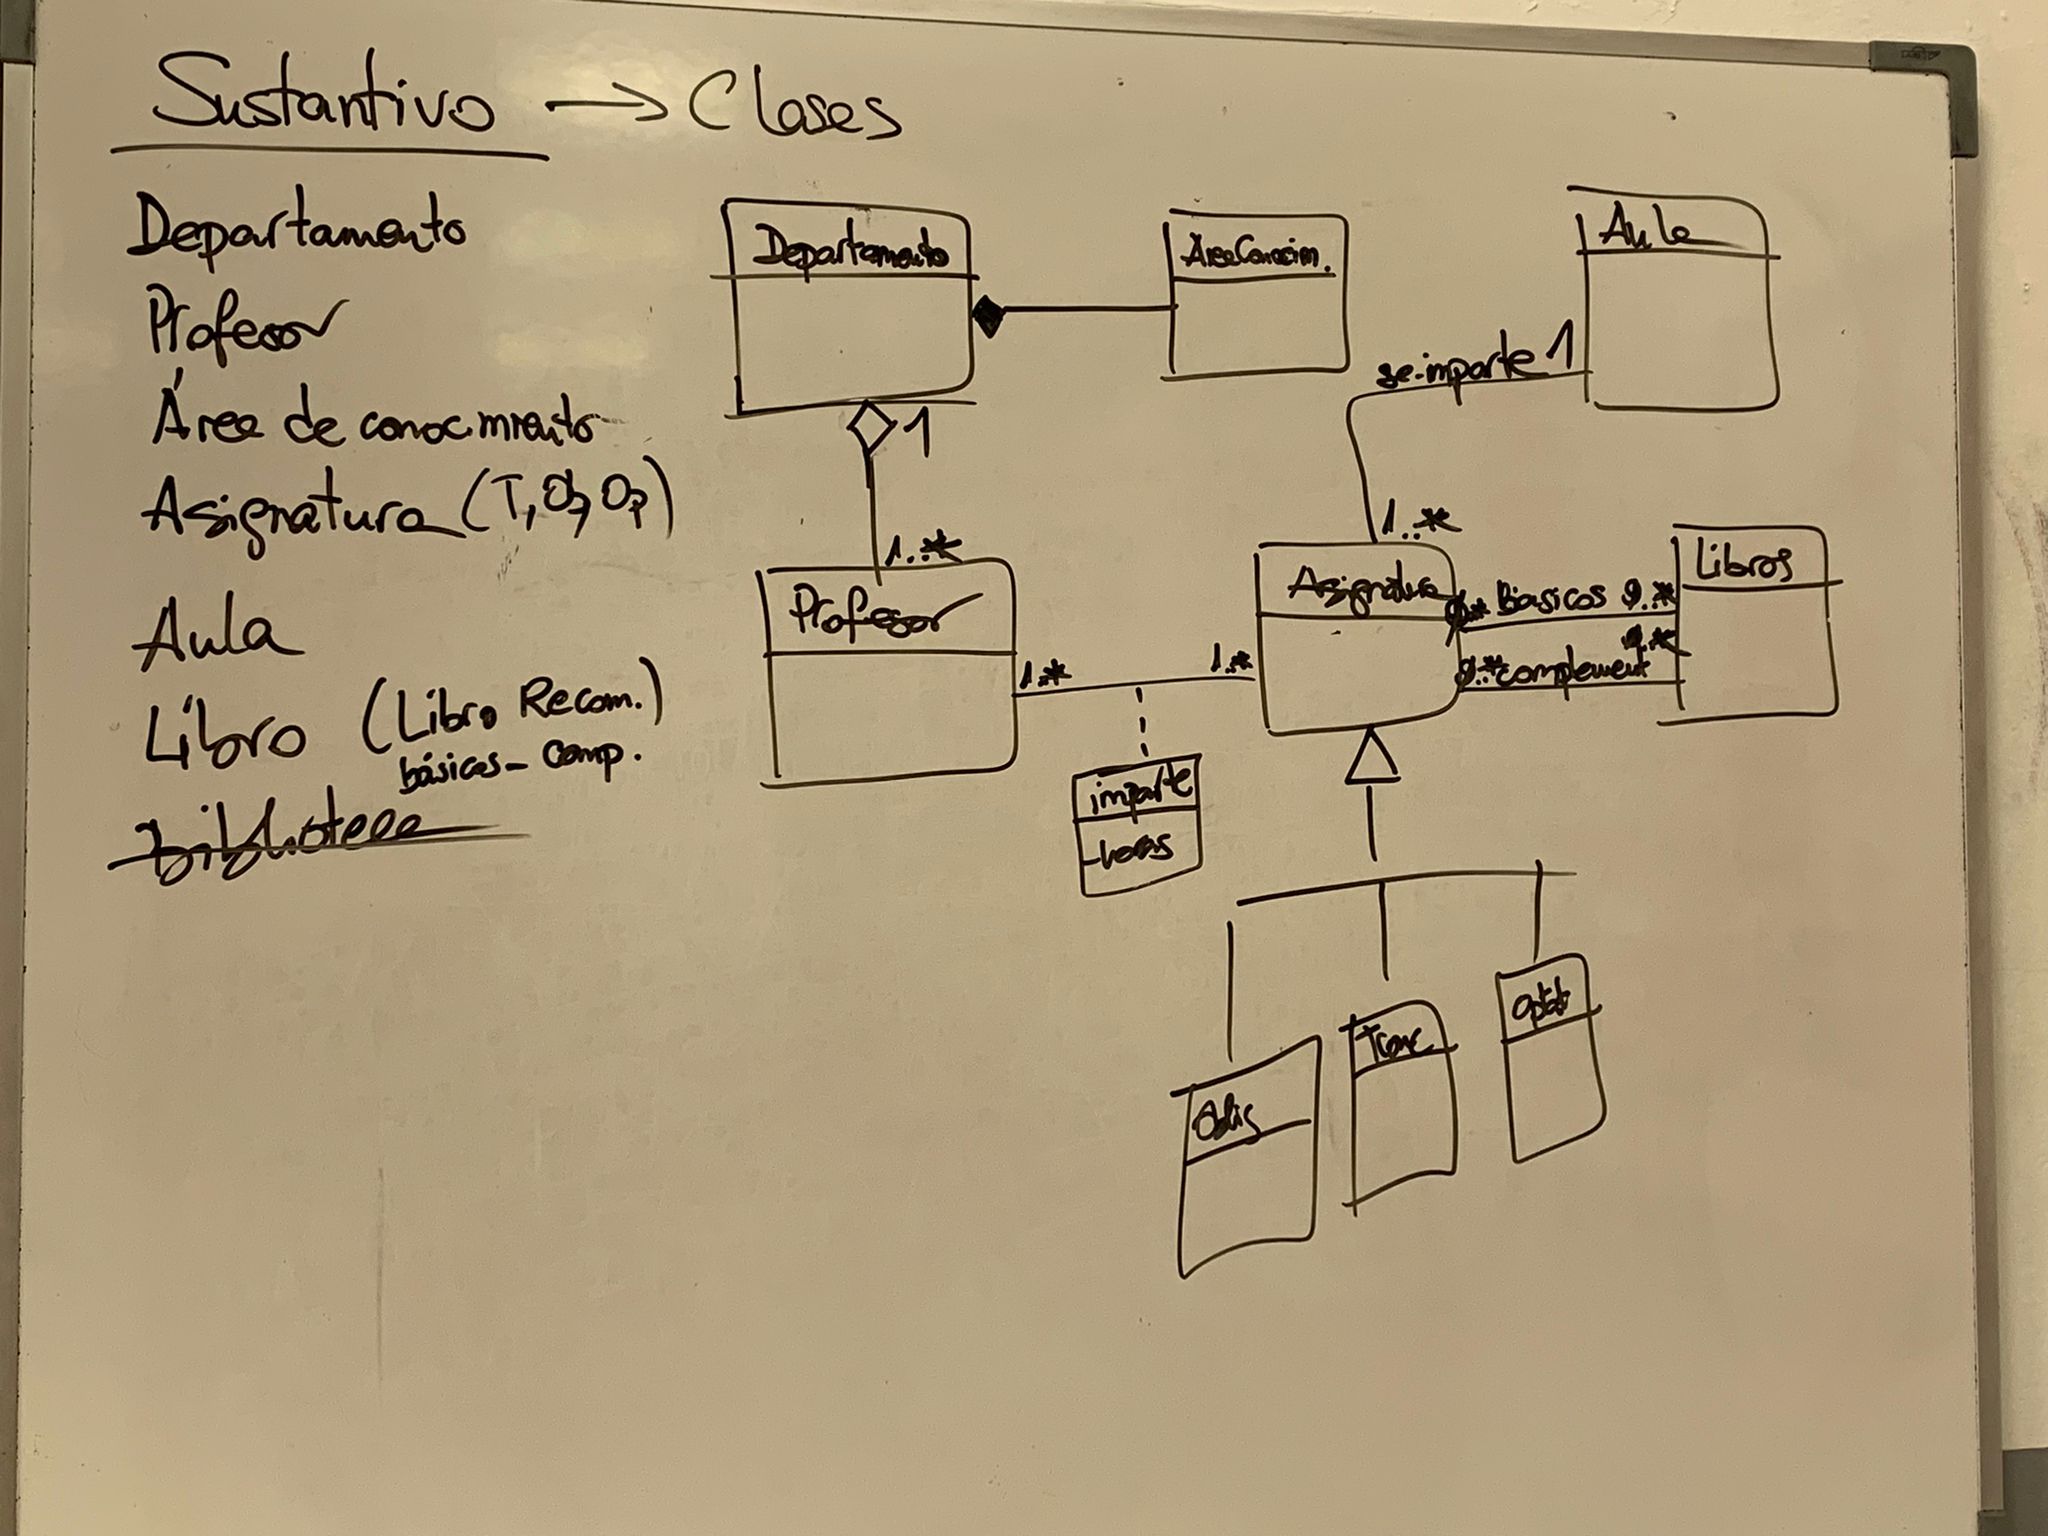 Sustantivo → Clases
Departamento
Profesor
Área de conocimiento
Asignatura (T, Ob, Op)
Aula
Libro (Libro Recom.)
básicos - comp.
biblioteca
Departamento
ÁreaConocim.
Aula
1
se-imparte 1
1..*
1..*
Profesor
Asignatura
Libros
0..* Básicos 0..*
0..*
0..* complement
1..*
1..*
imparte
-horas
Optat
Tronc
Oblig